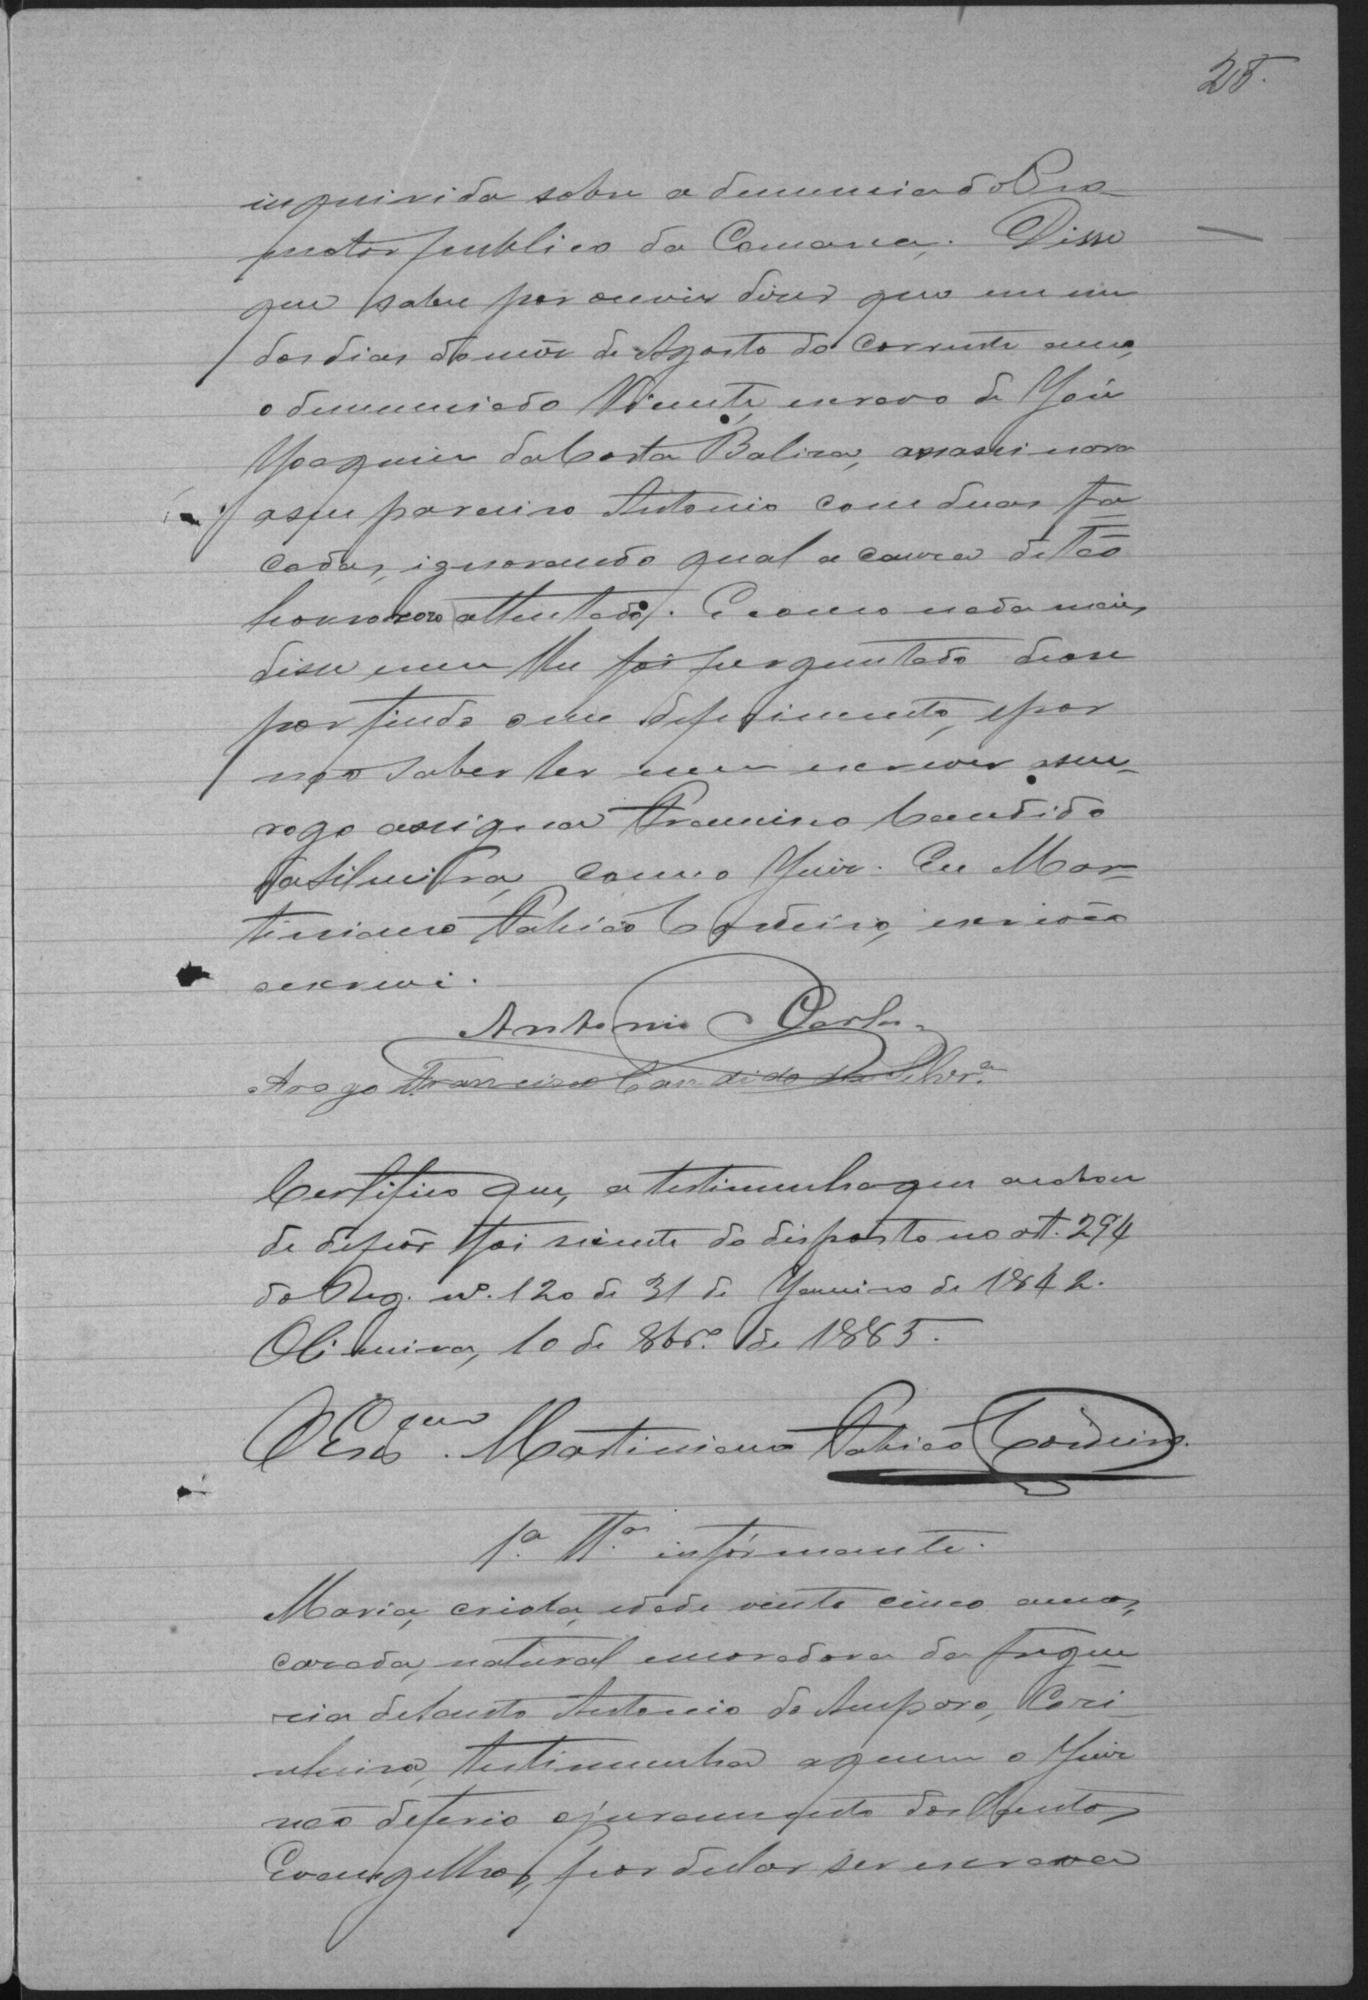 25.
inquirida sobre a denuncia do Pro-
motor publico da Comarca. Disse
que sabe por ouvir dizer que em um
dos dias do mez de Agosto do corrente anno,
o denunciado Vicente, escravo de José
Joaquim da Costa Baliza, assassinara
a seu parceiro Antonio com duas fa-
cadas, ignorando qual a causa de tão
horroroso attentado. E como nada mais
disse nem lhe foi perguntado deose
por findo este depoimento, e por
não saber ler nem escrever a seu
rogo assigna Francisco Candido
da Silveira, com o Juiz. Eu Mar-
tiniano Patricio Cordeiro, escrivão
o escrevi.
Antonio
Arogo Francisco Candido da Silvra.
Certifico que, a testimunha que acabou
de depôr foi sciente do disposto no art. 294
do Reg. nº. 120 de 31 de Janeiro de 1842.
10 de 8brº. de 1885.
O Escam. Martiniano Patricio Cordeiro.
1ª. Tª. informante.
Maria, criola, idade vinte cinco annos,
casada, natural e moradora da fregue-
cia de Santo Antonio do Amparo,
testimunha a quem o Juiz
não deferio o juramento dos Santos
Evangelhos, por declarar ser escrava